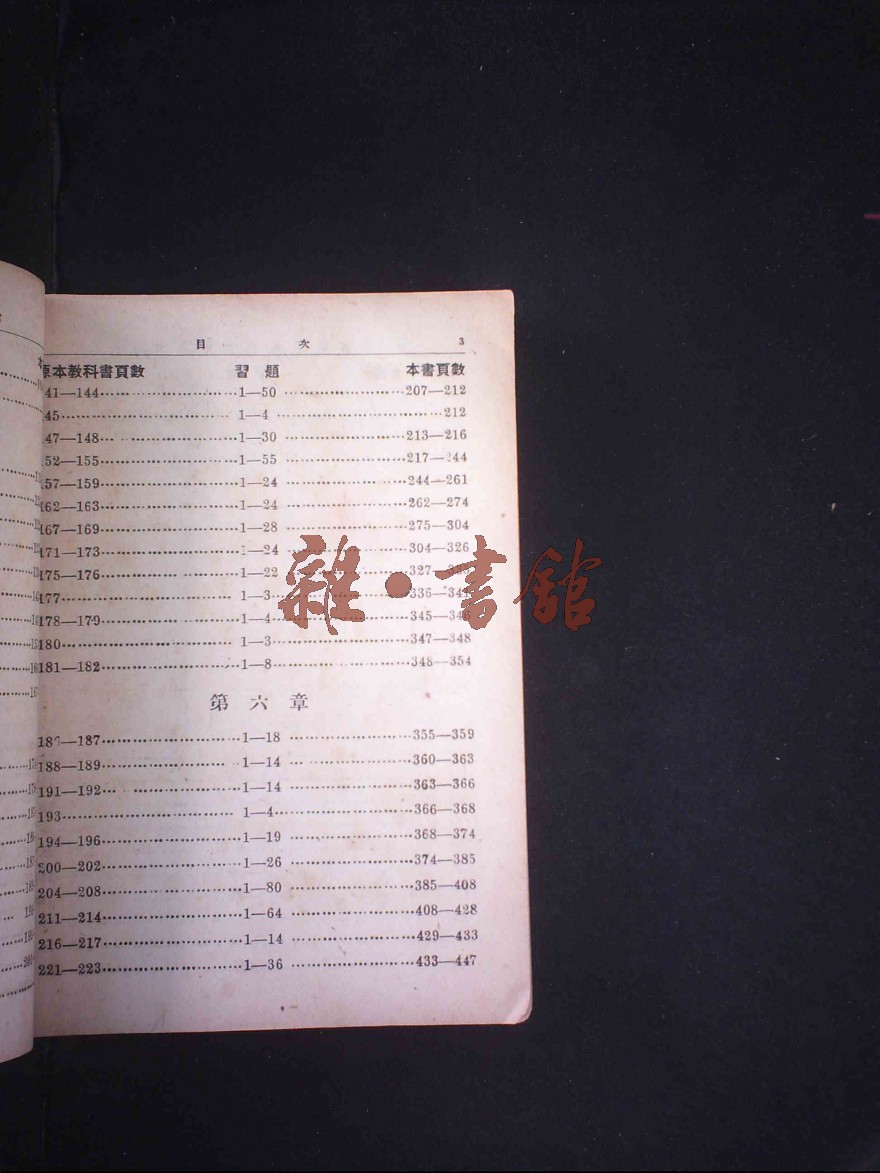 目 次 3
原本教科書頁數 習題 本書頁數
41—144 1—50 207—212
45 1—4 212
47—148 1—30 213—216
52—155 1—55 217—244
57—159 1—24 244—261
162—163 1—24 262—274
167—169 1—28 275—304
171—173 1—24 304—326
175—176 1—22 327—
177 1—3 336—34
178—179 1—4 345—346
180 1—3 347—348
181—182 1—8 348—354
雜·書館
第六章
186—187 1—18 355—359
188—189 1—14 360—363
191—192 1—14 363—366
193 1—4 366—368
194—196 1—19 368—374
200—202 1—26 374—385
204—208 1—80 385—408
211—214 1—64 408—428
216—217 1—14 429—433
221—223 1—36 433—447